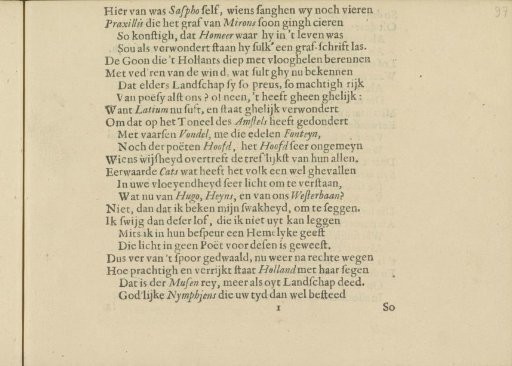 97
Hier van was Saspho self, wiens sanghen wy noch vieren
Praxillis die het graf van Mirons soon gingh cieren
So konstigh, dat Homeer waar hy in 't leven was
Sou als verwondert staan hy sulk' een graf-schrift las.
De Goon die 't Hollants diep met vlooghelen berennen
Met ved'ren van de wind. wat sult ghy nu bekennen
Dat elders Landschap sy so preus, so machtigh rijk
Van poësy alst ons? o! neen, 't heeft gheen ghelijk:
Want Latium nu sust, en staat ghelijk verwondert
Om dat op het Toneel des Amstels heeft gedondert
Met vaarsen Vondel, me die edelen Fonteyn,
Noch der poëten Hoofd, het Hoofd seer ongemeyn
Wiens wijsheyd overtreft de treflijkst van hun allen.
Eerwaarde Cats wat heeft het volk een wel ghevallen
In uwe vloeyendheyd seer licht om te verstaan,
Wat nu van Hugo, Heyns, en van ons Westerbaan?
Niet, dan dat ik beken mijn swakheyd, om te seggen.
Ik swijg dan deser lof, die ik niet uyt kan leggen
Mits ik in hun bespeur een Hemelyke geest
Die licht in geen Poët voor desen is geweest.
Dus ver van 't spoor gedwaald, nu weer na rechte wegen
Hoe prachtigh en verrijkt staat Holland met haar segen
Dat is der Musen rey, meer als oyt Landschap deed.
God'lijke Nymphjens die uw tyd dan wel besteed
1 So